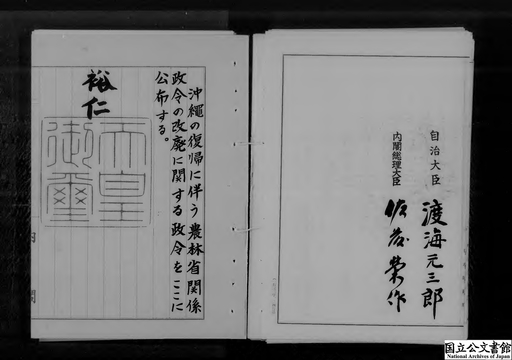 沖繩の復帰に伴う農林省関係
政令の改廃に関する政令をここに
公布する。
裕仁
天皇
御璽
内閣
自治大臣 渡海元三郎
内閣総理大臣 佐藤榮作
国立公文書館
National Archives of Japan